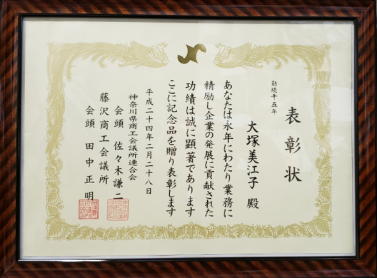 表彰状
勤続十五年
大塚美江子 殿
あなたは永年にわたり業務に
精励し企業の発展に貢献された
功績は誠に顕著であります
ここに記念品を贈り表彰します
平成二十四年二月二十八日
神奈川県商工会議所連合会
会頭 佐々木謙二
藤沢商工会議所
会頭 田中正明